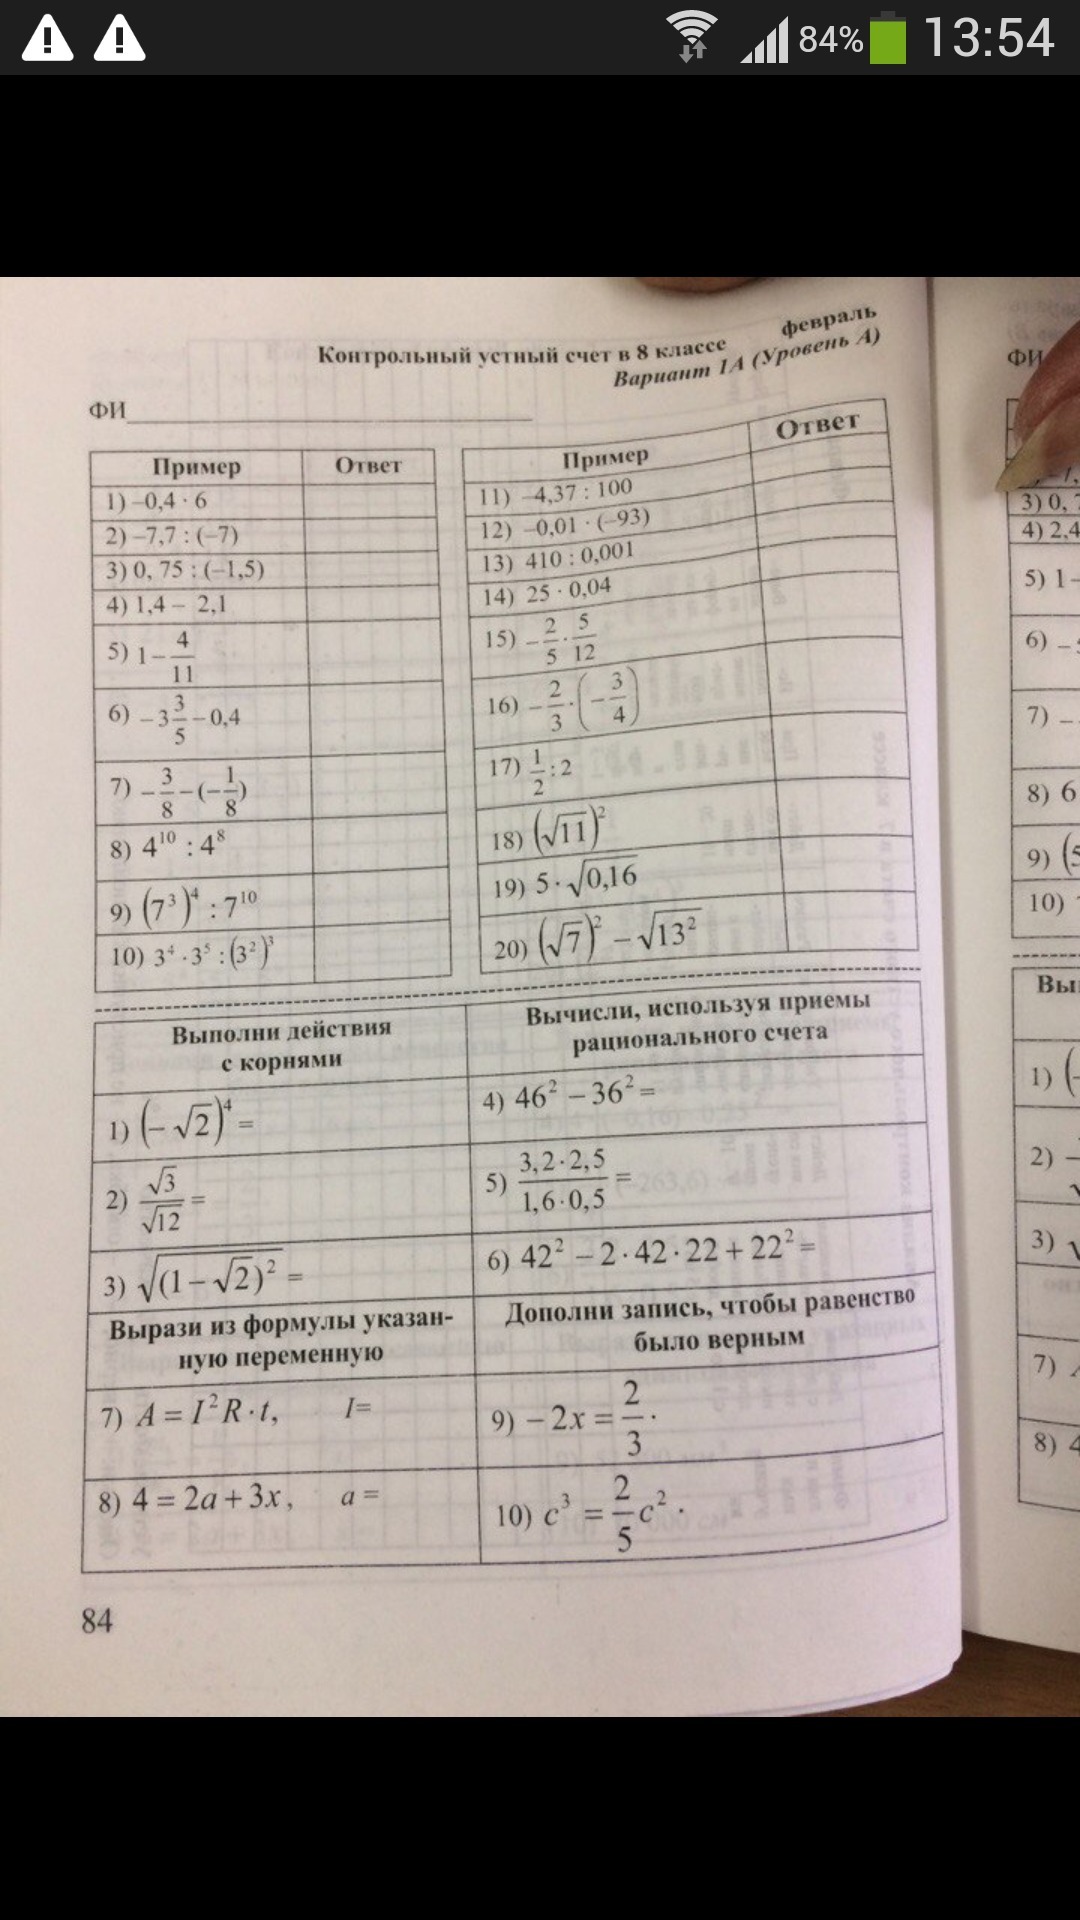 84% 13:54
февраль
Контрольный устный счет в 8 классе
Вариант 1А (Уровень А)
ФИ
Пример Ответ
1) –0,4 · 6
2) –7,7 : (–7)
3) 0, 75 : (–1,5)
4) 1,4 – 2,1
5) 1 – 4/11
6) –3 3/5 – 0,4
7) –3/8 – (–1/8)
8) 4¹⁰ : 4⁸
9) (7³)⁴ : 7¹⁰
10) 3⁴ · 3⁵ : (3²)³
Пример Ответ
11) –4,37 : 100
12) –0,01 · (–93)
13) 410 : 0,001
14) 25 · 0,04
15) –2/5 · 5/12
16) –2/3 · (–3/4)
17) 1/2 : 2
18) (√11)²
19) 5 · √0,16
20) (√7)² – √13²
Выполни действия
с корнями
1) (– √2)⁴ =
2) √3/√12 =
3) √(1 – √2)² =
Вычисли, используя приемы
рационального счета
4) 46² – 36² =
5) 3,2 · 2,5 / 1,6 · 0,5 =
6) 42² – 2 · 42 · 22 + 22² =
Вырази из формулы указан-
ную переменную
7) A = I²R · t, I=
8) 4 = 2a + 3x, a =
Дополни запись, чтобы равенство
было верным
9) – 2x = 2/3 ·
10) c³ = 2/5 c² ·
84
ФИ
3) 0,
4) 2,4
5) 1–
6) –
7) –
8) 6
9) (5
10)
Вы
1) (–
2)
3)
7)
8) 4